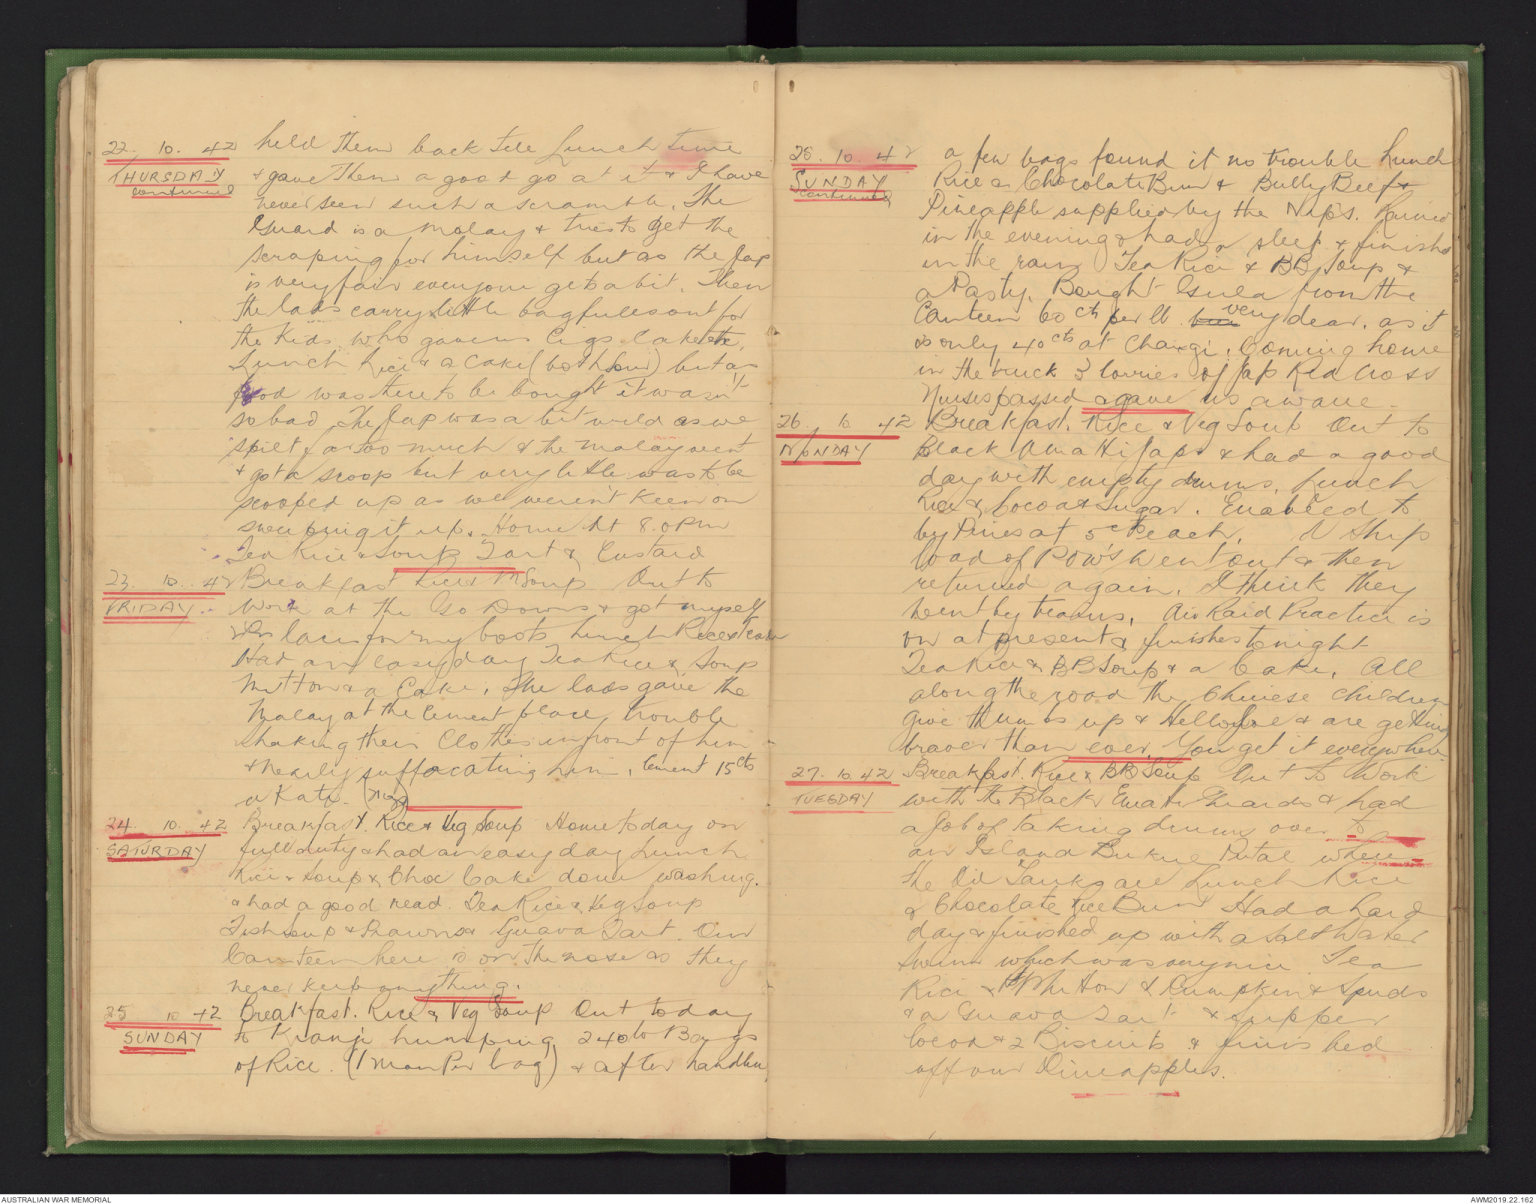 22. 10. 42
THURSDAY
continued
held them back till Lunch time
& gave them a good go at it & I have
never seen such a scramble. The
Guard is a Malay & tries to get the
scraping for himself but as the Jap
is very fair everyone gets a bit. Then
the lads carry little bagfuls out for
the Kids who gave us Cigs. Cake etc.
Lunch Rice & a Cake (both Sour) but as
food was there to be bought it wasn't
so bad. The Jap was a bit wild as we
spilt far too much & the Malay went
& got a scoop but very little was to be
scooped up as we weren't keen on
sweeping it up. Home At 8.0 PM
Tea Rice & Soup Tart & Custard
23. 10. 42
FRIDAY.
Breakfast Rice & M Soup Out to
Work at the Go Downs & got myself
laces for my boots Lunch Rice &
Had an easy day Tea Rice & Soup
Mutton & a Cake. The lads gave the
Malay at the Cement place trouble
shaking their Clothes in front of him
& nearly suffocating him. Cement 15cts
a Kati.
24. 10. 42
SATURDAY
Breakfast. Rice & Veg Soup Home today on
full duty & had an easy day Lunch
Rice & Soup & Choc Cake done washing.
& had a good read. Tea Rice & Veg Soup
Fish Soup & Prawns & Guava Tart. Our
Canteen here is on the nose as they
never keep anything.
25 10 42
SUNDAY
Breakfast. Rice & Veg Soup Out today
to Kranji humping 240 lb Bags
of Rice. (1 Man Per bag) & after handling
25. 10. 42
SUNDAY
continued
a few bags found it no trouble Lunch
Rice a Chocolate Bun & Bully Beef &
Pineapple supplied by the Nips. Rained
in the evening & had a sleep & finished
in the rain Tea Rice & BB Soup &
a Pasty. Bought Gula from the
Canteen 60 cts per lb. very dear. as it
is only 40 cts at Changi. Coming home
in the truck 3 lorries of Jap Red Cross
Nurses passed & gave us a wave.
26. 10. 42
MONDAY
Breakfast. Rice & Veg Soup Out to
Black Japs & had a good
day with empty drums. Lunch
Rice & Cocoa & Sugar. Enabled to
by Pines at 5 cts each. A Ship
load of POW's went out & then
returned again. I think they
went by trains. Air Raid Practice is
on at present & finishes tonight
Tea Rice & BB Soup & a Cake. All
along the road the Chinese children
give thumbs up & Hello Joe & are getting
braver than ever. You get it everywhere
27. 10. 42
TUESDAY
Breakfast. Rice & BB Soup Out to Work
with the Black Guards & had
a job of taking drums over to
an Island where
the Oil Tanks are Lunch Rice
& Chocolate Rice Bun Had a hard
day & finished up with a Salt Water
swim which was very nice Tea
Rice & Mutton & Pumpkin & Spuds
& a Guava Tart & supper
Cocoa & 2 Biscuits & finished
off our Pineapples.
AUSTRALIAN WAR MEMORIAL
AWM2019.22.162